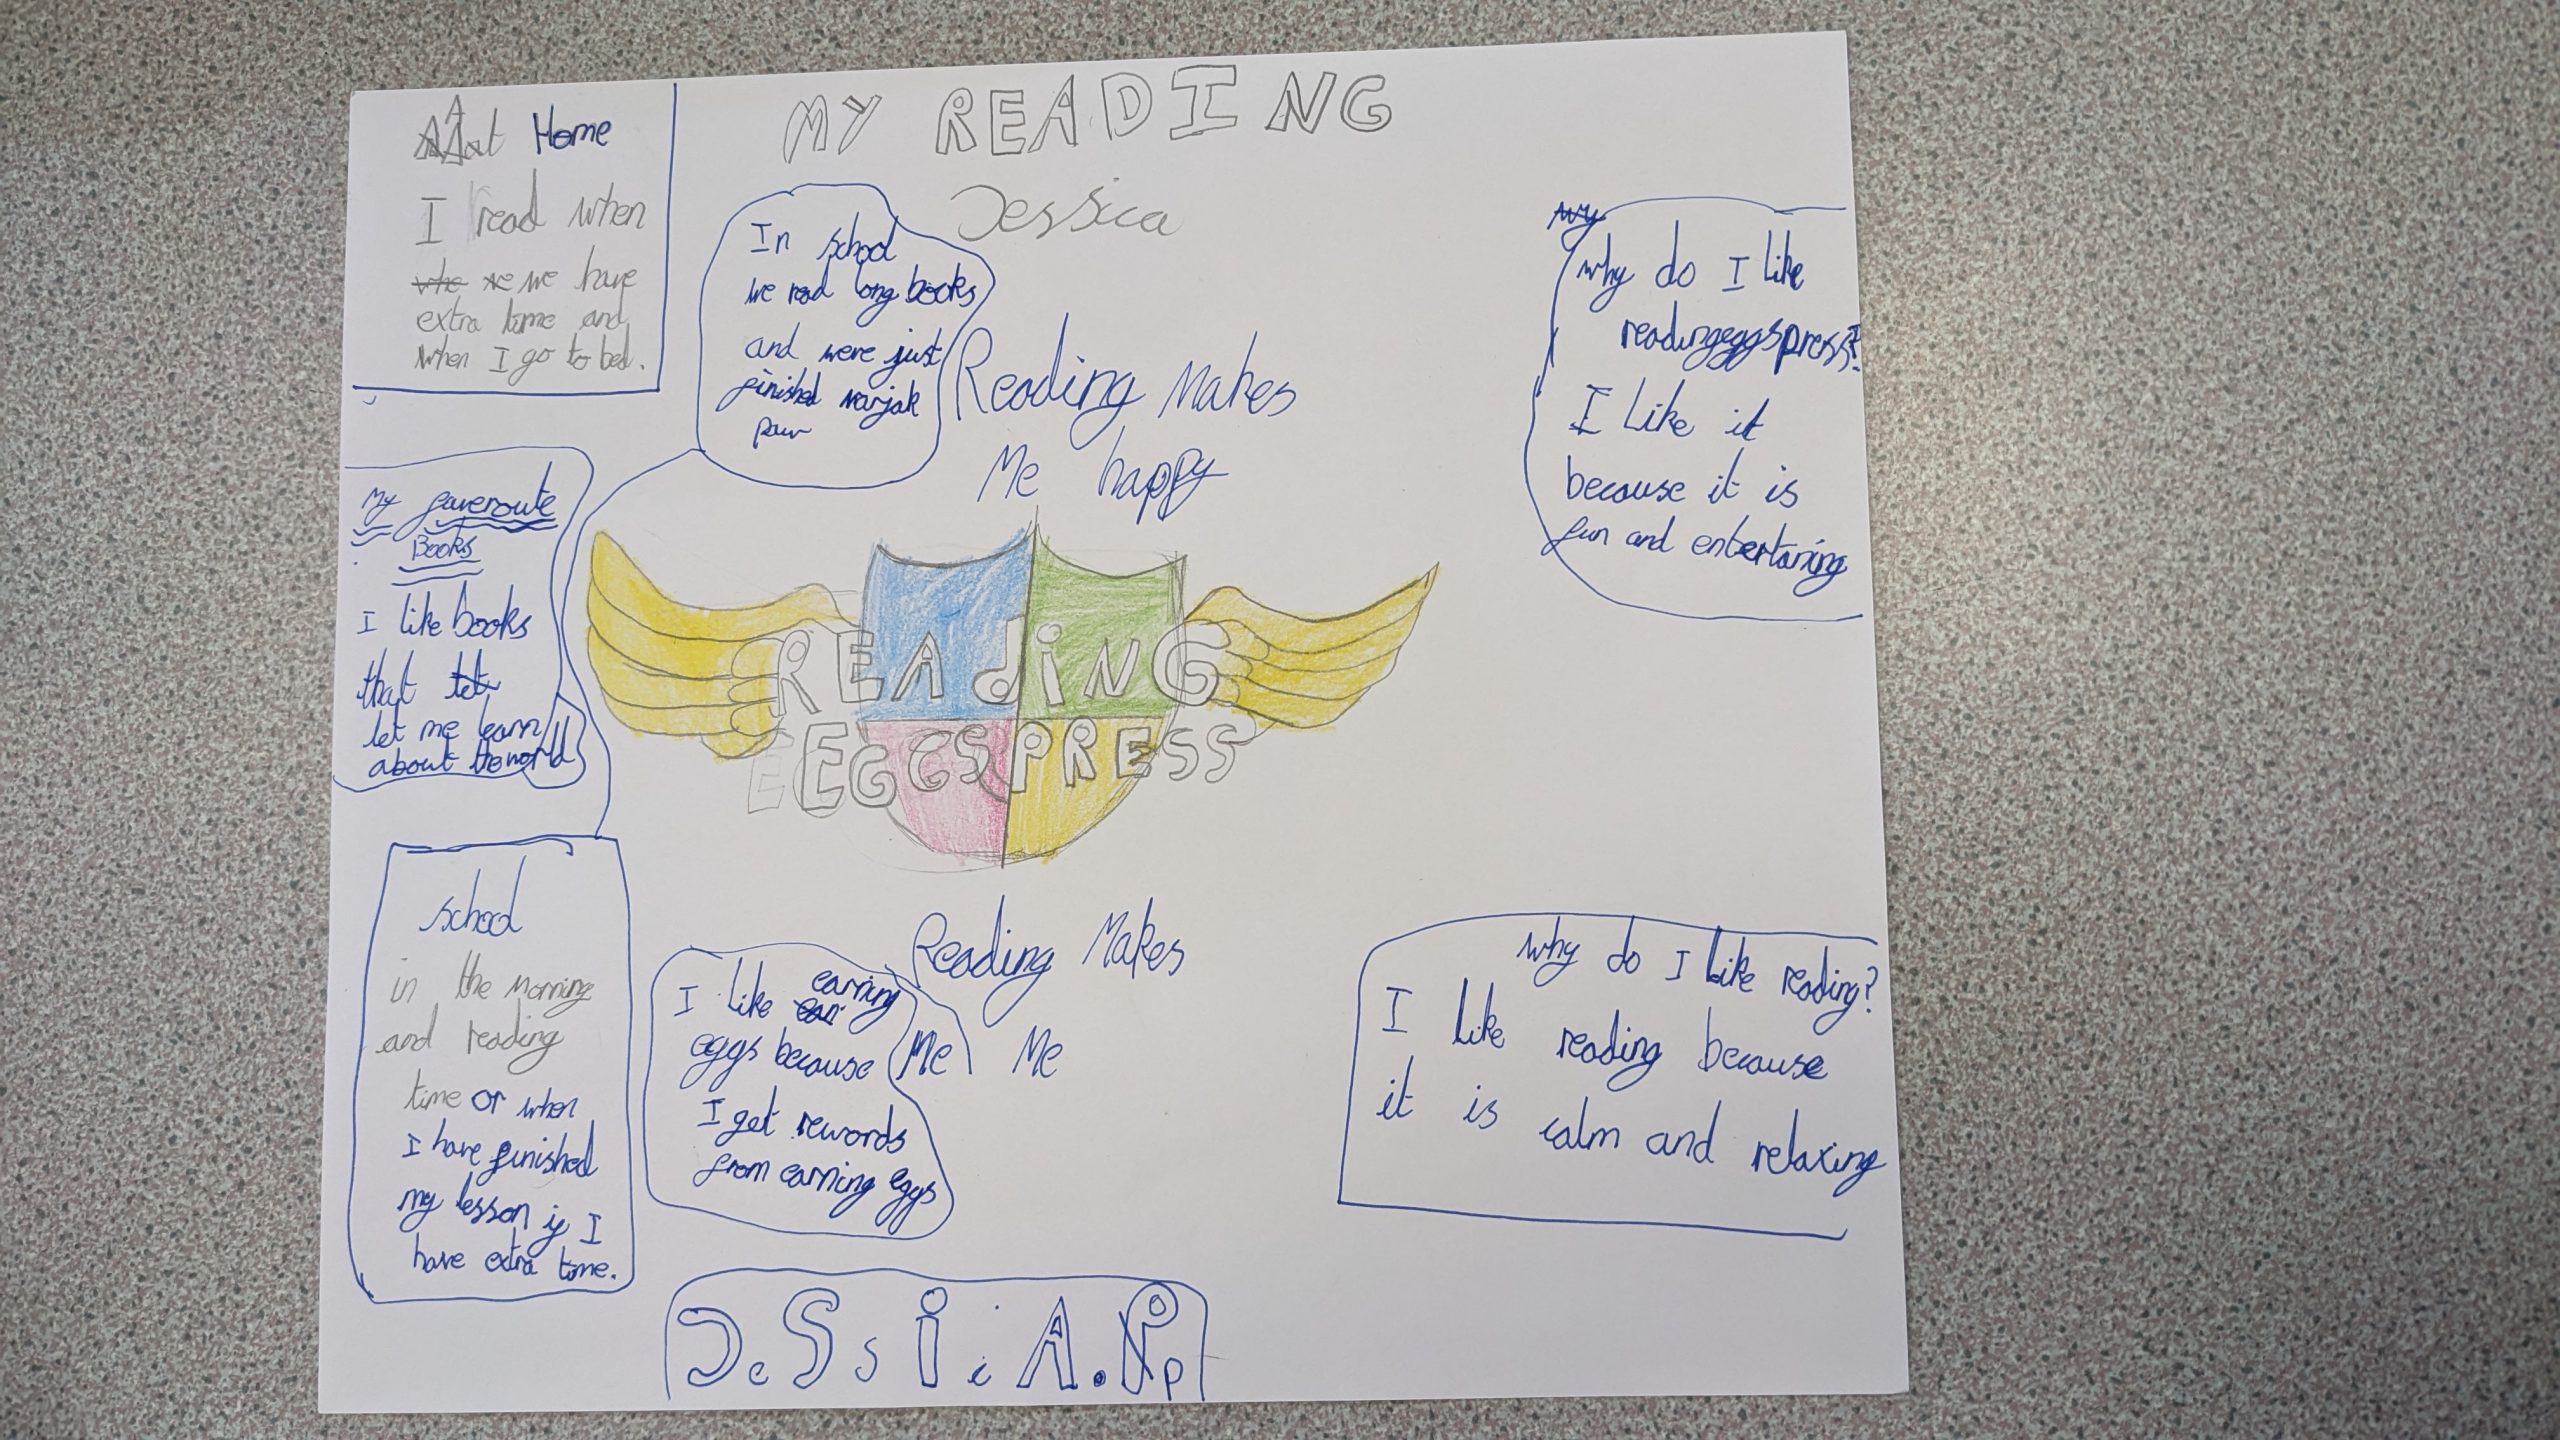 MY READING
Jessica
at Home
I read when
we have
extra time and
when I go to bed.
In school
we read long books
and were just
finished varjak
paw
Reading Makes
Me happy
why do I like
readingeggspress?
I like it
because it is
fun and entertaning
My faveroute
Books
I like books
that
let me learn
about the world
READiNG
EGGSPRESS
school
in the morning
and reading
time or when
I have finished
my lesson if I
have extra time.
Reading Makes
Me Me
I like earning
eggs because
I get rewords
from earning eggs
why do I like reading?
I like reading because
it is calm and relaxing
JeSsicA.P